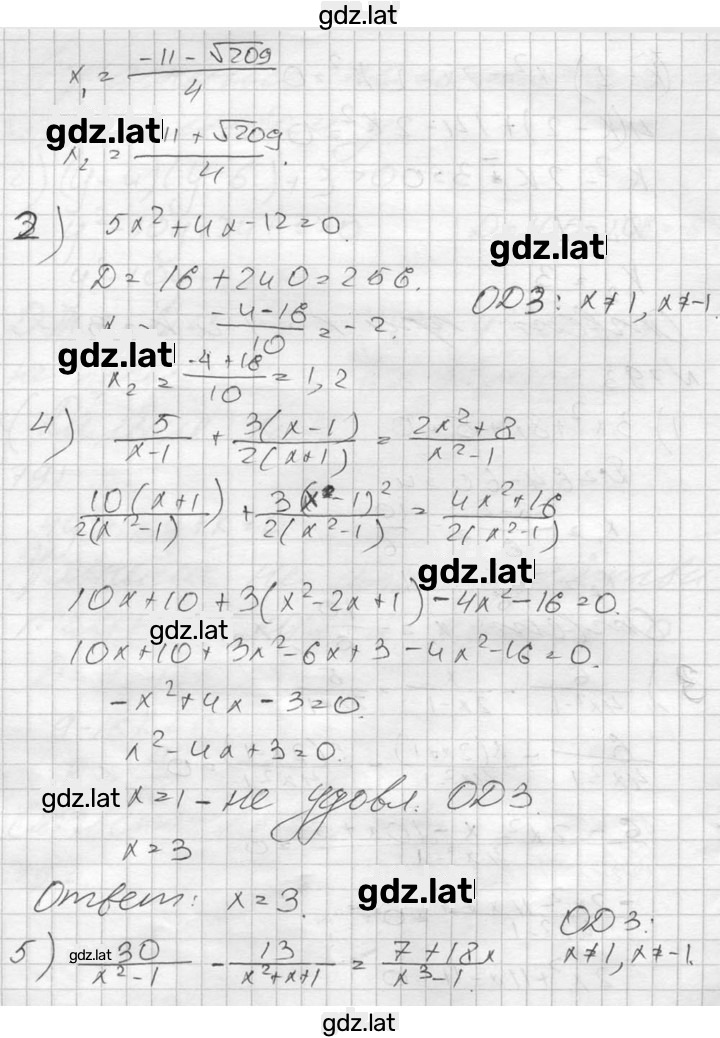 gdz.lat
x₁ = (-11 - √209)/4
gdz.lat
x₂ = (-11 + √209)/4.
3) 5x² + 4x - 12 = 0.
gdz.lat
D = 16 + 240 = 256.
ОДЗ: x ≠ 1, x ≠ -1.
(-4 - 16)/10 = -2.
gdz.lat
x₂ = (-4 + 18)/10 = 1,2
4) 5/(x-1) + 3(x-1)/2(x+1) = (2x²+8)/(x²-1)
10(x+1)/2(x²-1) + 3(x-1)²/2(x²-1) = (4x²+16)/2(x²-1)
gdz.lat
10x + 10 + 3(x² - 2x + 1) - 4x² - 16 = 0.
gdz.lat
10x + 10 + 3x² - 6x + 3 - 4x² - 16 = 0.
-x² + 4x - 3 = 0.
x² - 4x + 3 = 0.
gdz.lat
x = 1 - не удовл. ОДЗ.
x = 3
gdz.lat
Ответ: x = 3.
ОДЗ:
x ≠ 1, x ≠ -1.
gdz.lat
5) 30/(x²-1) - 13/(x²+x+1) = (7+18x)/(x³-1)
gdz.lat